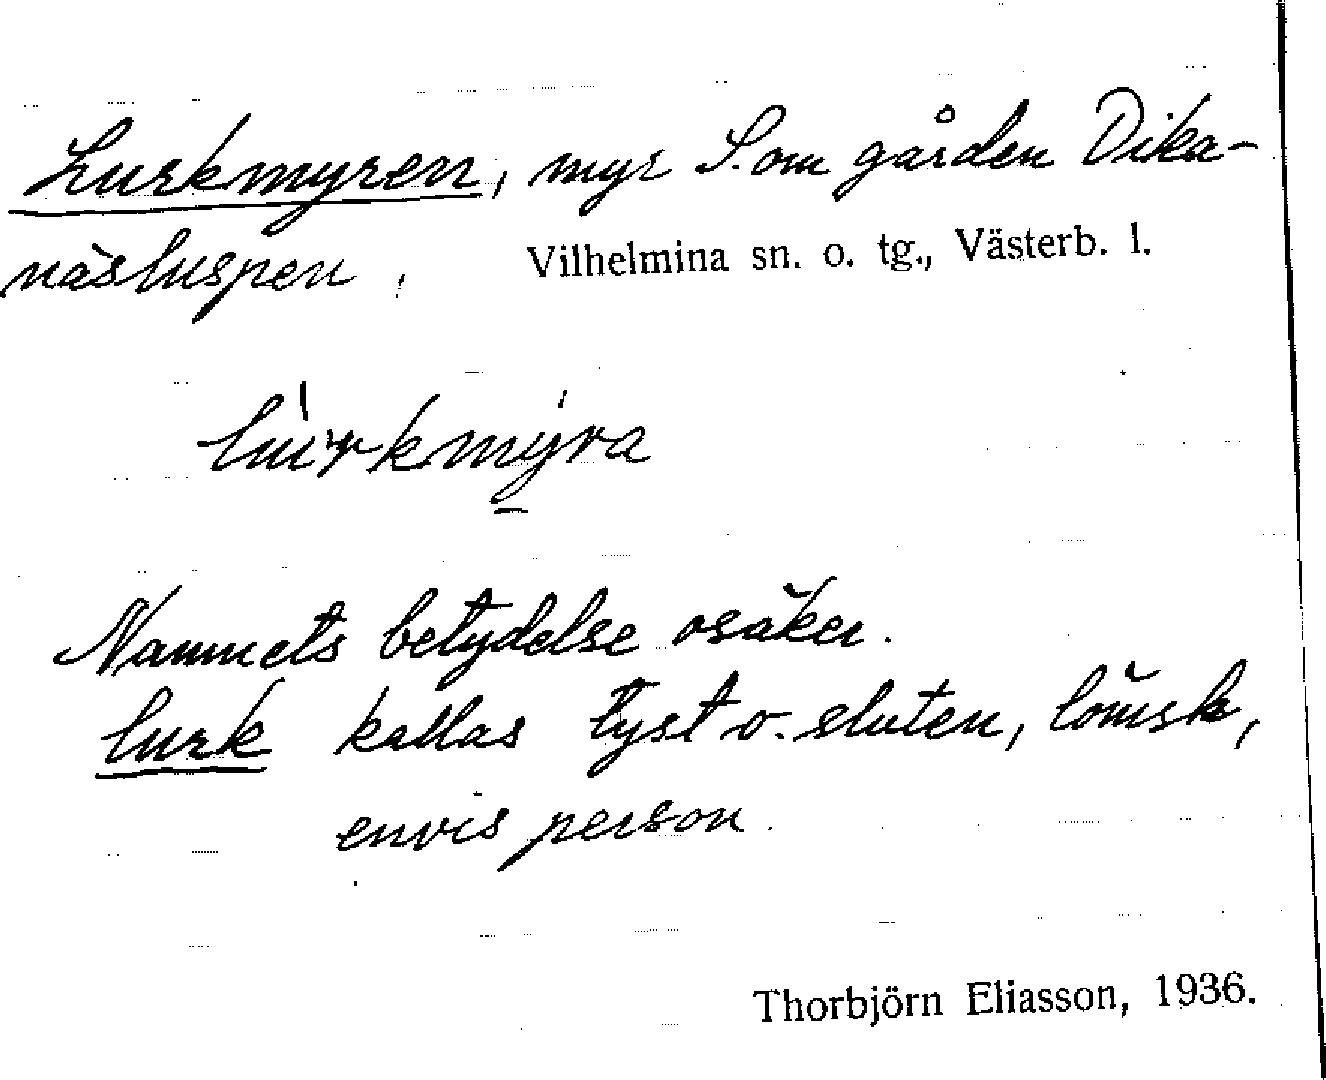 Lurkmyren, myr S. om gården Dika-
näsluspen. Vilhelmina sn. o. tg., Västerb. l.
lu̍rkmy̍ra
Namnets betydelse osäker.
lurk kallas tyst o. sluten, lömsk,
envis person.
Thorbjörn Eliasson, 1936.